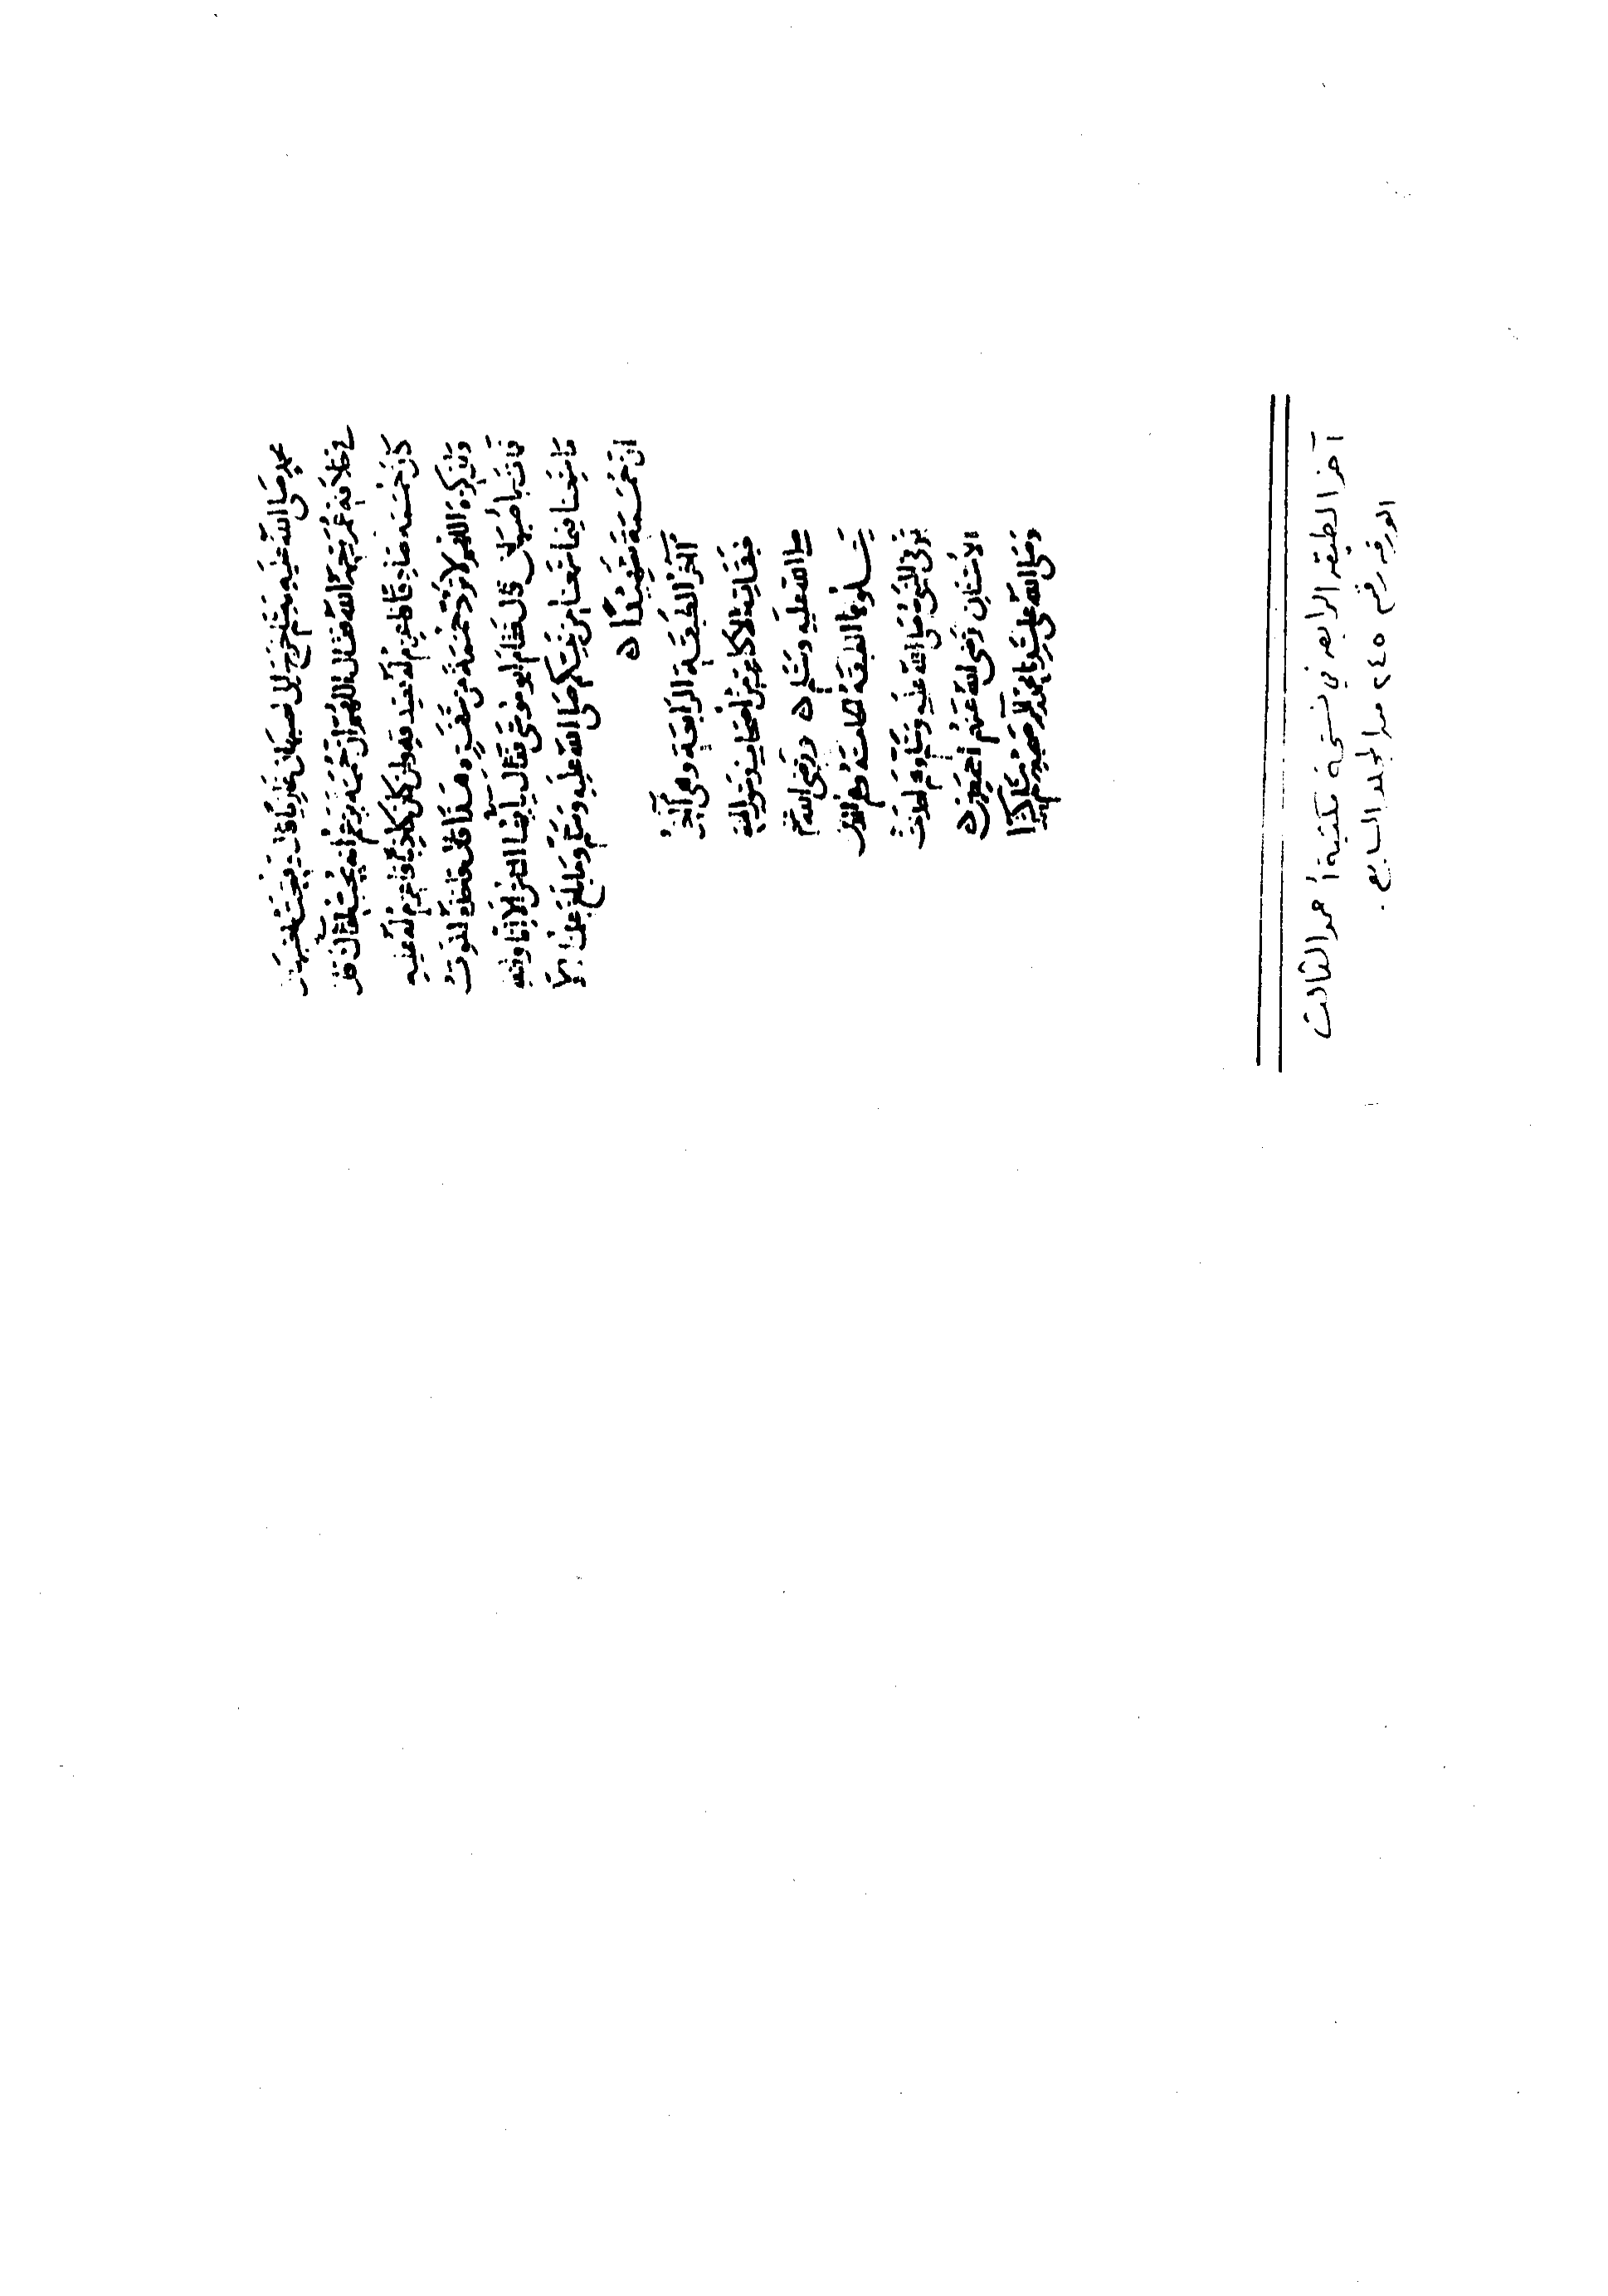 محمد صلى الله عليه وسلم خرج الى اصبهان غازيا قال وفتحت اصبهان
في خلافة عمر رحمه الله فقال اللهم ان حممة يزعم انه يحب لقاك فان
كان حممة صادقا فاعزم له بصدقه وان كان كاذبا فاعزم له عليه
وان كره اللهم لا ترد حممة من سفره هذا قال فاخذه الموت
فمات باصبهان قال فقام ابو موسى فقال يا ايها الناس الا انا والله
ما سمعنا فيما سمعنا من نبيكم صلى الله عليه وسلم وما بلغ علمنا الا
ان حممة شهيد ا ه
آخر الطبقة الرابعة وهي آخر
طبقات الاكابر من اصحاب رسول الله
صلى الله عليه وسلم ه ورضي الله عنهم
يتلوها الطبقة الخامسة وهم الذين
توفي النبي صلى الله عليه وسلم وهم احداث
الاسنان رضي الله عنهم اجمعين ه
وصلى الله على سيدنا محمد وآله وصحبه وسلم كثيرا
آخر الطبقة الرابعة في نسخة مكتبة أحمد الثالث
الورقة رقم ٢٤٥ من المجلد السابع.